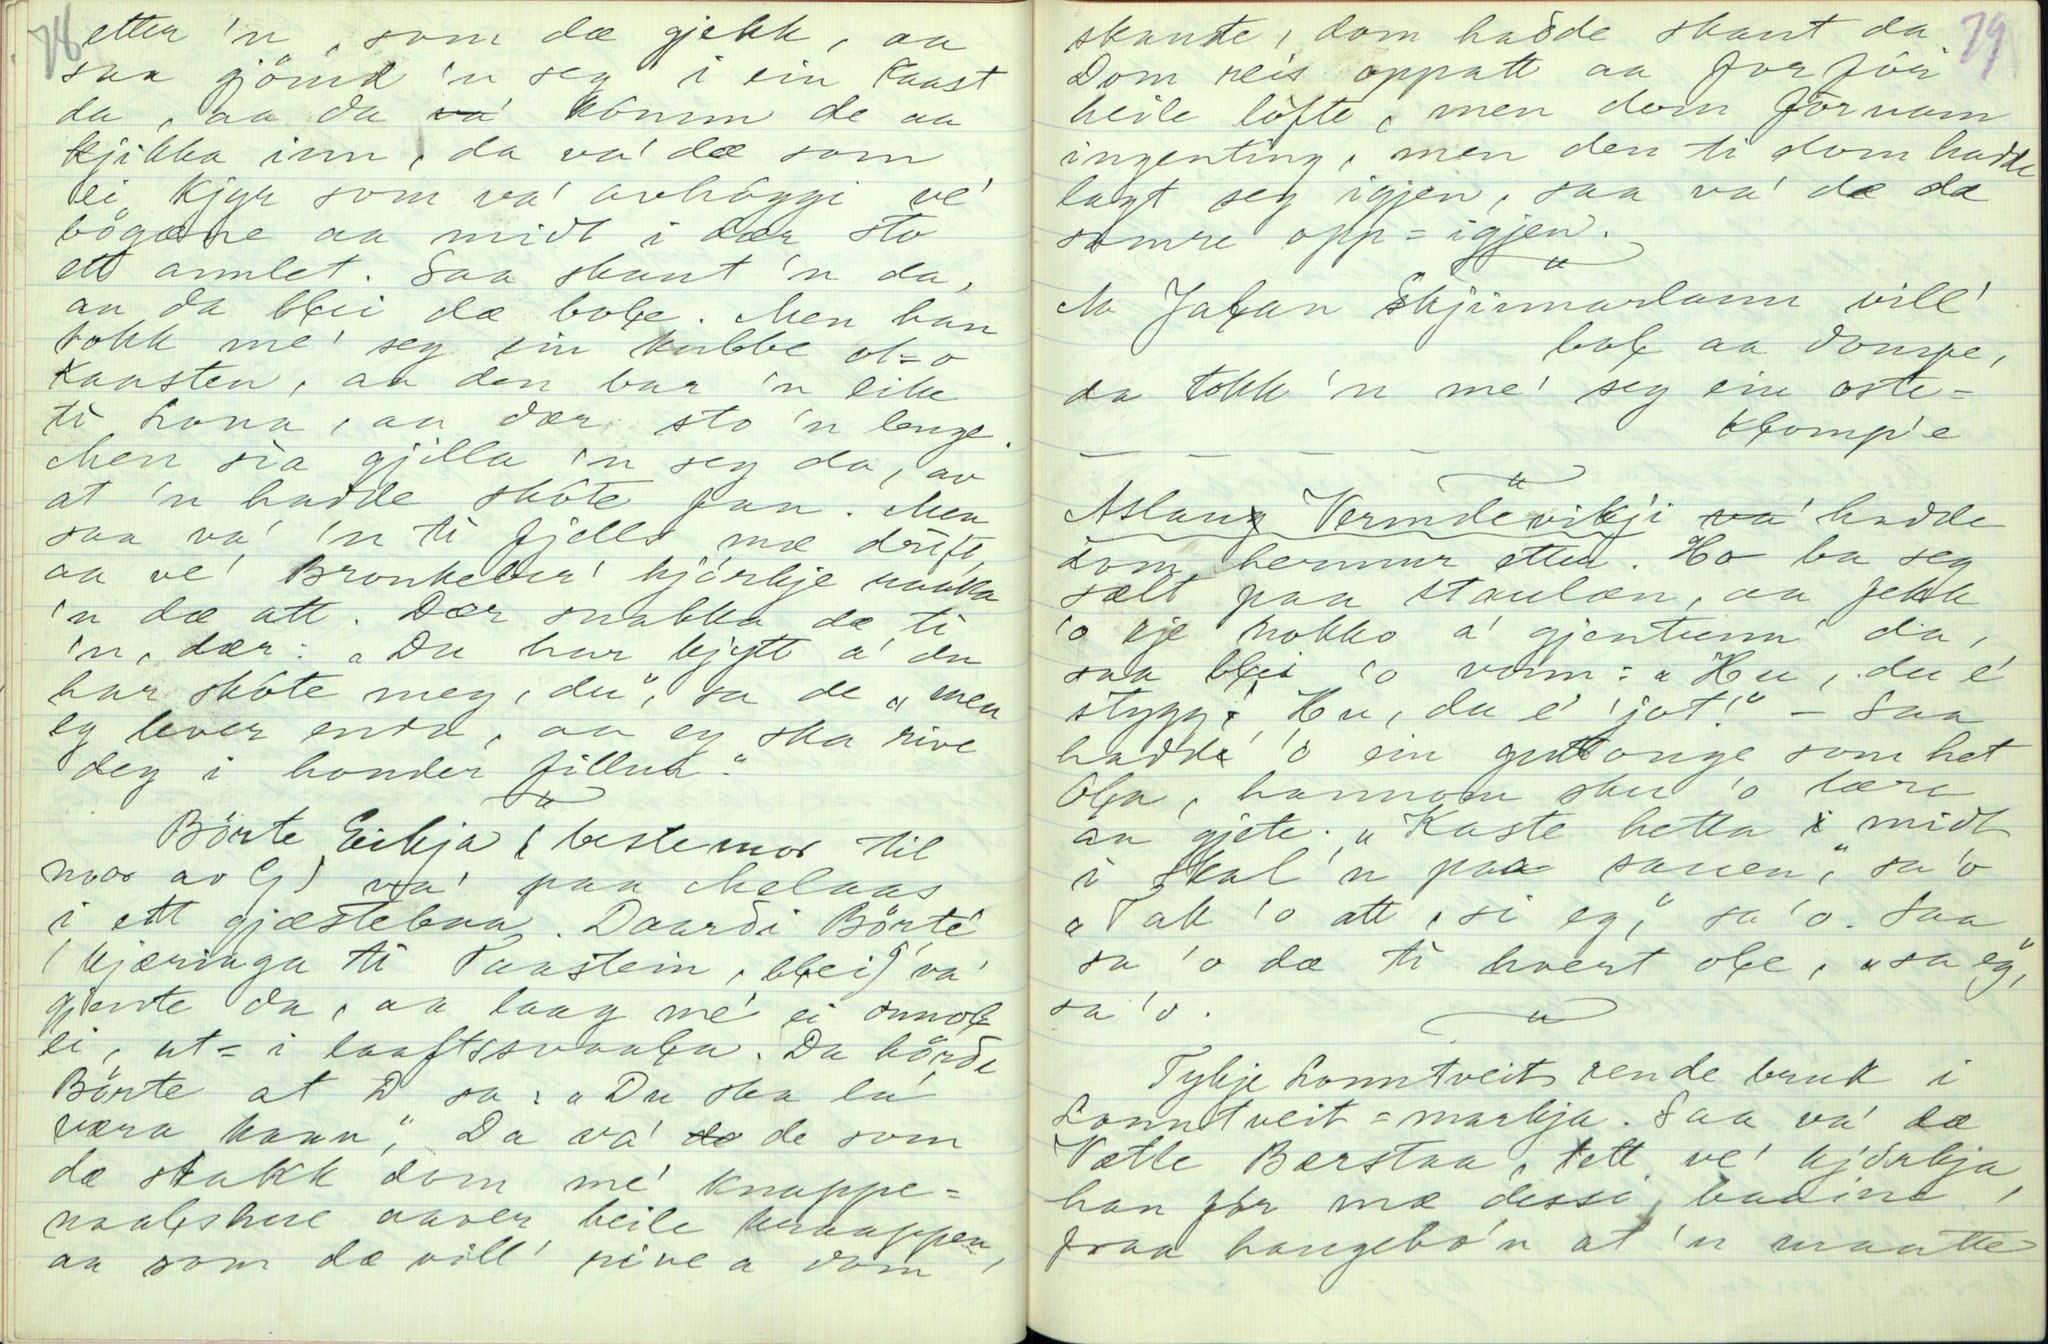 78
etter 'n, som dæ gjekk, aa
saa gjömd 'n seg i ein kaast
da, aa da va' kómm de aa
kjikka inn, da va' dæ som
ei kjyr som va' avhöggi ve'
bögane aa midt i dær sto
ett annlet. Saa skaut 'n da,
aa da blei dæ bole. Men han
tokk me' seg ein kubbe ot=o
kaasten, aa den bar 'n like
ti Lona, aa dær sto 'n lenge.
Men sia gjilla 'n seg da, av
at 'n hadde skôte fan. Men
saa va' 'n ti fjells mæ drift,
aa ve' Bronkeber' kjörkje raaka
'n dæ att. Dær snakka de ti
'n, dær: „Du har kjytt a' du
har skôte meg, du", sa de „men
eg lever enda, aa eg ska rive
deg i honder fillur."
Börte Eikja (bestemor til
mor av G) va' paa Melaas
i ett gjæstebaa. Daardi Börte
(kjæringa ti Taastein, blei) va'
gjente da, aa laag me' ei onnol
ei, ut=i laaftssvaala. Da hörde
Börte at D sa: „Du ska la'
væra kaan", Da va' de de som
dæ stakk dom me' knappe=
naalshue aaver heile kraappen,
aa som dæ vill' rive a dom

79
skaute, dom hadde skaut da
Dom reis oppatt aa for för
heile löfte, men dom förnam
ingenting, men den ti dom hadde
lagt seg igjen, saa va' dæ dæ
samre opp=igjen.
Aa Jalan Skjinnarlann vill'
bal aa dompe,
da tokk 'n me' seg ein oste=
klomp'e
— — — — —
Aslaug Vermdevikji va' hadde
dom hermur etter. Ho ba seg
sælt paa staulæn, aa fekk
'o kje nokko a' gjentunn' da,
saa blei 'o vonn: „Hu, du é
stygg! Hu, du é 'jot!" – Saa
hadde 'o ein guttonge som het
Ola, hannom sku 'o læra
aa gjete. „Kaste hetta i midt
i skal'n paa sauen," sa 'o
„Tak 'o att, si eg," sa 'o. Saa
sa 'o dæ ti hvert ole, „sa eg",
sa 'o.
Tykje Lonntveit rende bruk i
Lonntveit=markja. Saa va' dæ
Vætle Bærstaa, tett ve' kjörkja,
han för mæ dessi baaine,
fraa haugebó'n at 'n maatte